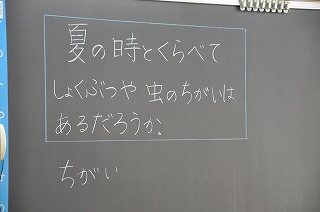 夏の時とくらべて
しょくぶつや 虫のちがいは
あるだろうか。
ちがい